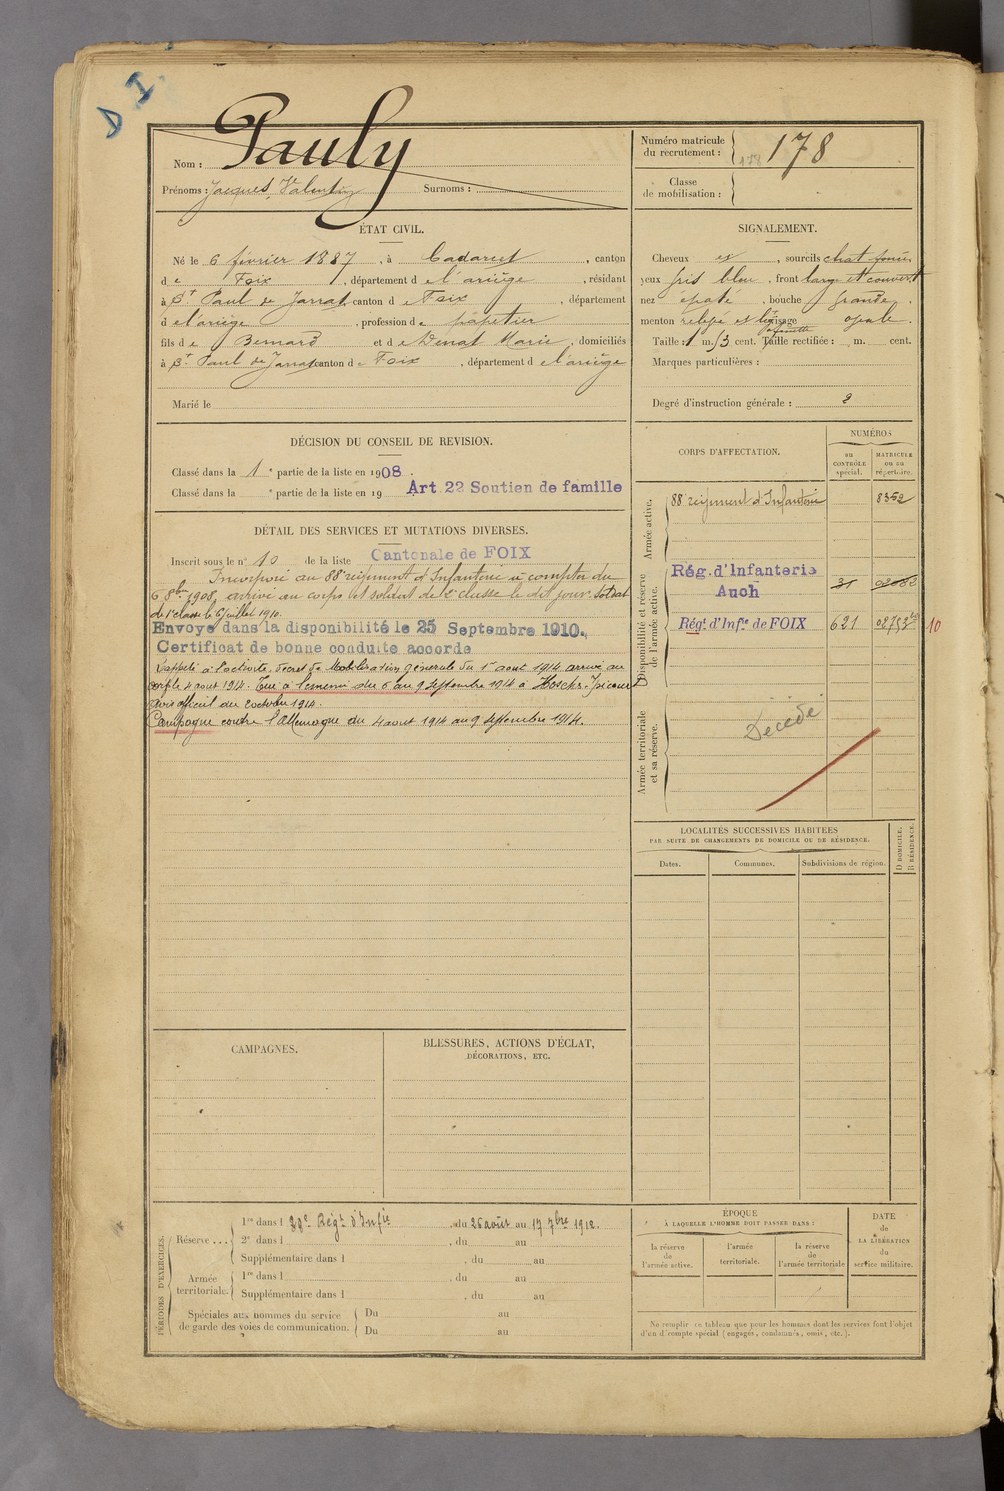 D I.
Nom : Pauly
Prénoms : Jacques Valentin Surnoms :
Numéro matricule du recrutement : 178 178
Classe de mobilisation :
ÉTAT CIVIL.
Né le 6 février 1887, à Cadarcet, canton
de Foix, département de l'ariège, résidant
à St Paul de Jarrat canton de Foix, département
de l'ariège, profession de papetier
fils de Bernard et de Denat Marie, domiciliés
à St Paul de Jarrat canton de Foix, département de l'ariège
Marié le
SIGNALEMENT.
Cheveux et, sourcils chat foncés
yeux gris bleu, front large et couvert
nez épaté, bouche grande.
menton relevé et visage ovale.
Taille : 1 m. 53 cent. Taille rectifiée : m. cent.
Marques particulières :
Degré d'instruction générale : 2
DÉCISION DU CONSEIL DE REVISION.
Classé dans la 1e partie de la liste en 1908.
Classé dans la e partie de la liste en 19 Art. 22 Soutien de famille
DÉTAIL DES SERVICES ET MUTATIONS DIVERSES.
Inscrit sous le n° 10 de la liste Cantonale de FOIX
Incorporé au 88e régiment d'Infanterie à compter du
6 8bre 1908, arrivé au corps et soldat de 2e classe le dit jour. Soldat
de 1e classe le 6 juillet 1910.
Envoyé dans la disponibilité le 25 Septembre 1910.
Certificat de bonne conduite accordé
Rappelé à l'activité, décret de Mobilisation Générale du 1er aout 1914 arrivé au
corps le 4 aout 1914. Tué à l'ennemi du 6 au 9 Septembre 1914 à
avis officiel du octobre 1914.
Campagne contre l'Allemagne du 4 aout 1914 au 9 septembre 1914.
CORPS D'AFFECTATION.
NUMÉROS
au CONTRÔLE spécial.
MATRICULE ou au répertoire.
Armée active.
88e régiment d'Infanterie 8362
Disponibilité et réserve de l'armée active.
Rég. d'Infanterie
Auch 31 02082
Régt. d'Infie de FOIX 621 02753 10
Armée territoriale et sa réserve.
Décédé
LOCALITÉS SUCCESSIVES HABITÉES
PAR SUITE DE CHANGEMENTS DE DOMICILE OU DE RÉSIDENCE.
Dates. Communes. Subdivisions de région.
D DOMICILE.
R RÉSIDENCE.
CAMPAGNES.
BLESSURES, ACTIONS D'ÉCLAT,
DÉCORATIONS, ETC.
PÉRIODES D'EXERCICES.
Réserve ... 1re dans l 29e Régt d'Infie, du 26 août au 17 7bre 1912.
2e dans l , du au
Supplémentaire dans l , du au
Armée territoriale. 1re dans l , du au
Supplémentaire dans l , du au
Spéciales aux hommes du service Du au
de garde des voies de communication. Du au
ÉPOQUE
À LAQUELLE L'HOMME DOIT PASSER DANS :
la réserve de l'armée active.
l'armée territoriale.
la réserve de l'armée territoriale
DATE de LA LIBÉRATION du service militaire.
Ne remplir ce tableau que pour les hommes dont les services font l'objet
d'un décompte spécial (engagés, condamnés, omis, etc.).